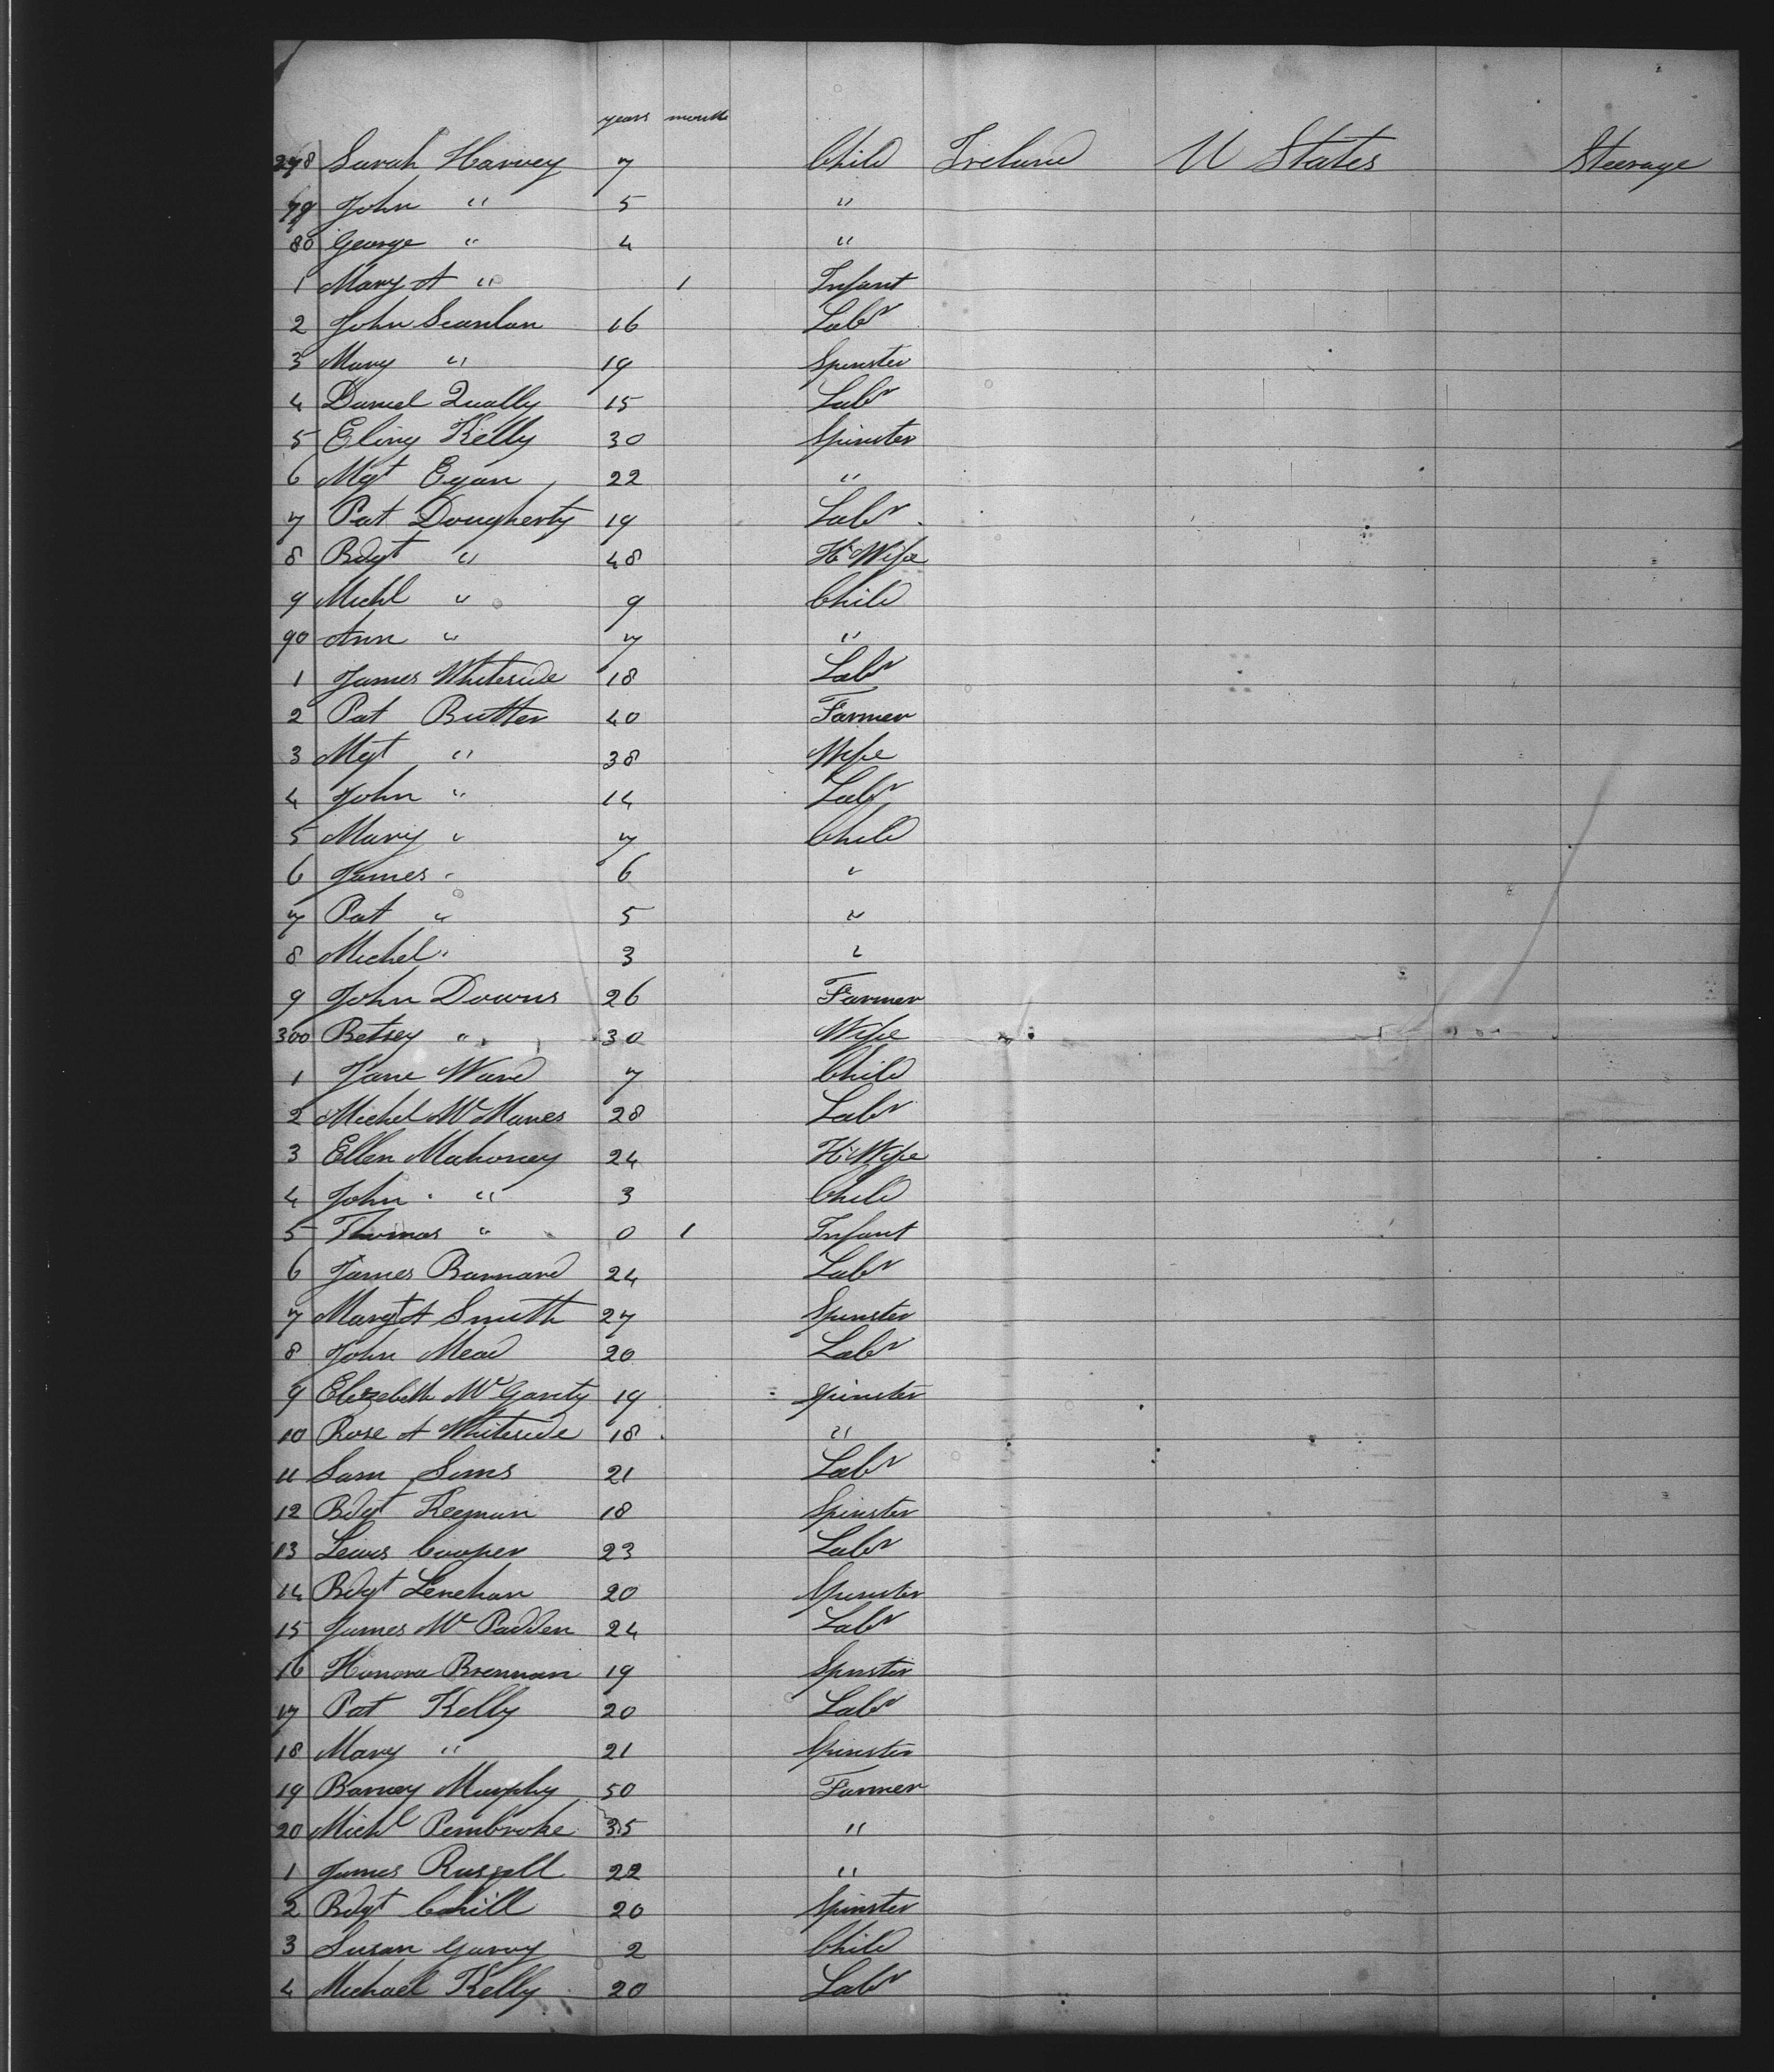 years month
278 Sarah Harvey 7 Child Ireland U States Steerage
79 John " 5 "
80 George " 4 "
1 Mary A " 1 Infant
2 John Scanlan 16 Labr
3 Mary " 19 Spinster
4 Daniel Qually 15 Labr
5 Eliny Kelly 30 Spinster
6 Mgt Egan 22 "
7 Pat Dougherty 19 Labr
8 Bdgt " 48 H Wife
9 Michl " 9 Child
90 Ann " 7 "
1 James Whiteside 18 Labr
2 Pat Butter 40 Farmer
3 Mgt " 38 Wife
4 John " 14 Labr
5 Mary " 7 Child
6 James " 6 "
7 Pat " 5 "
8 Michel " 3 "
9 John Downs 26 Farmer
300 Betsey " 30 Wife
1 Jane Ward 7 Child
2 Michel McManes 28 Labr
3 Ellen Mahoney 24 H Wife
4 John " 3 Child
5 Thomas " 0 1 Infant
6 James Barnard 24 Labr
7 Margt A Smith 27 Spinster
8 John Mead 20 Labr
9 Elizebeth McGarity 19 Spinster
10 Rose A Whiteside 18 "
11 Sam Sims 21 Labr
12 Bdgt Keenan 18 Spinster
13 Lewis Cooper 23 Labr
14 Bdgt Lenehan 20 Spinster
15 James McPadden 24 Labr
16 Honora Brennan 19 Spnster
17 Pat Kelly 20 Labr
18 Mary " 21 Spinster
19 Barney Murphy 50 Farmer
20 Michl Pembroke 35 "
1 James Russell 22 "
2 Bdgt Cahill 20 Spinster
3 Susan Garvy 2 Child
4 Michael Kelly 20 Labr